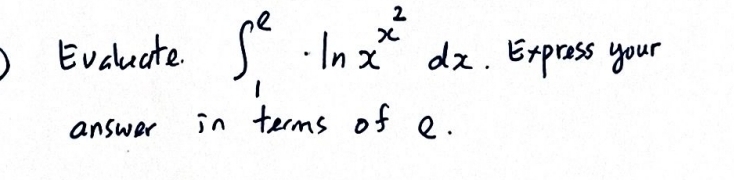 ) Evaluate. ∫₁ᵉ · ln x^{x^2} dx. Express your
answer in terms of e.